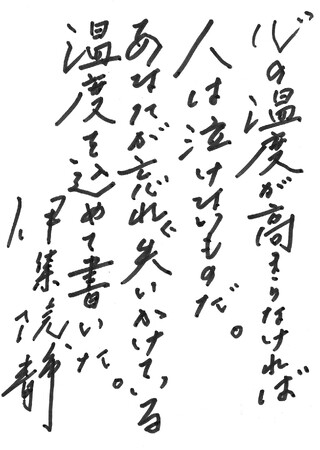 心の温度が高くなければ
人は泣けないものだ。
あなたが忘れ、失いかけている
温度を込めて書いた。
伊集院静